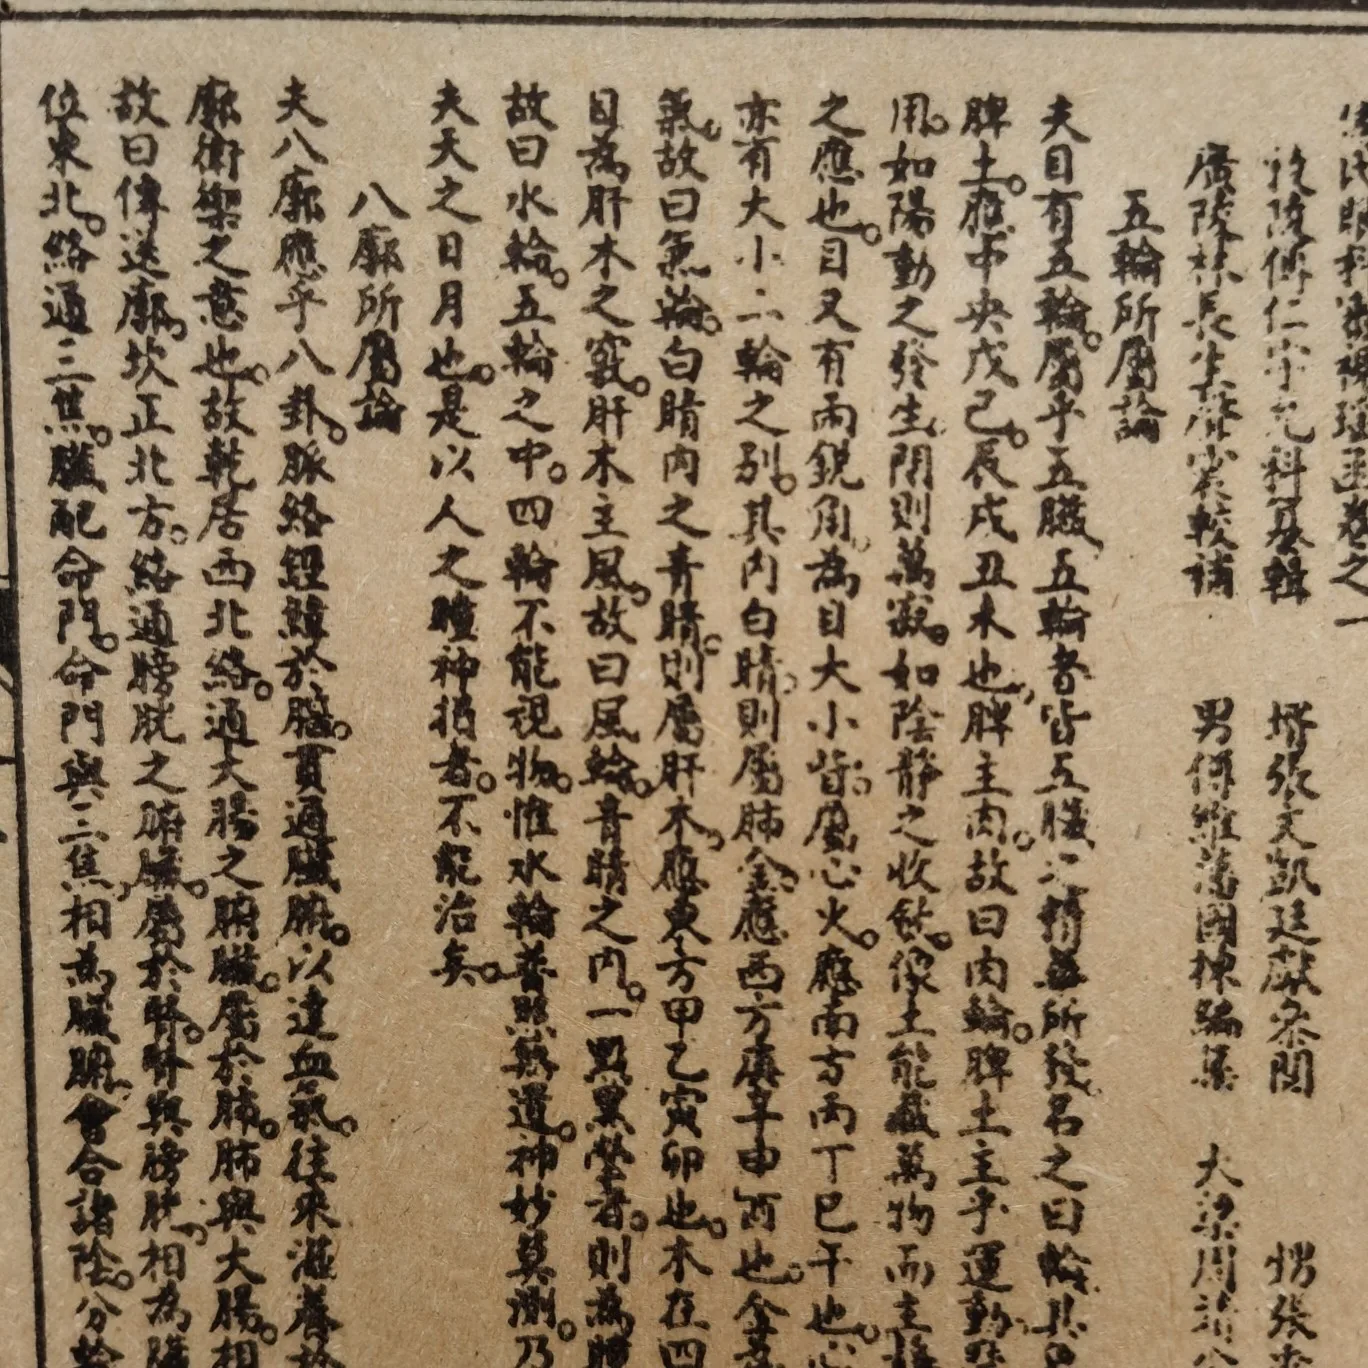 傅氏眼科審視瑤函卷之一
秣陵傅仁宇允科纂輯　壻張文凱廷獻叅閱　甥張
廣陵林長生蘑宷較補　男傅維藩國棟編集　大梁周靖公
五輪所屬論
夫目有五輪。屬乎五臟、五輪者皆五臟之精華所發名之曰輪其
脾土。應中央戊己。辰戌丑未也。脾主肉。故曰肉輪。脾土主乎運動
用。如陽動之發生閉則萬寂。如陰靜之收斂。像土能藏萬物而主
之應也。目又有兩銳角。為目大小眥。屬心火。應南方丙丁巳午也。心
亦有大小二輪之別。其內白睛。則屬肺金。應西方庚辛申酉也。金
氣。故曰氣輪。白睛內之青睛。則屬肝木。應東方甲乙寅卯也。木在四
目為肝木之竅。肝木主風。故曰風輪。青睛之內。一點黑瑩者。則為
故曰水輪。五輪之中。四輪不能視物。惟水輪普照無遺。神妙莫測。乃
夫天之日月也。是以人之瞳神損者。不能治矣。
八廓所屬論
夫八廓應乎八卦。脈絡經緯於腦。貫通臟腑。以達血氣。往來滋養於
廓衛禦之意也。故乾居西北絡。通大腸之腑臟。屬於肺。肺與大腸。相
故曰傳送廓。坎正北方。絡通膀胱之腑臟。屬於腎。腎與膀胱、相為
位東北。絡通三焦。臟配命門。命門與三焦、相為臟腑、會合諸陰。分輸